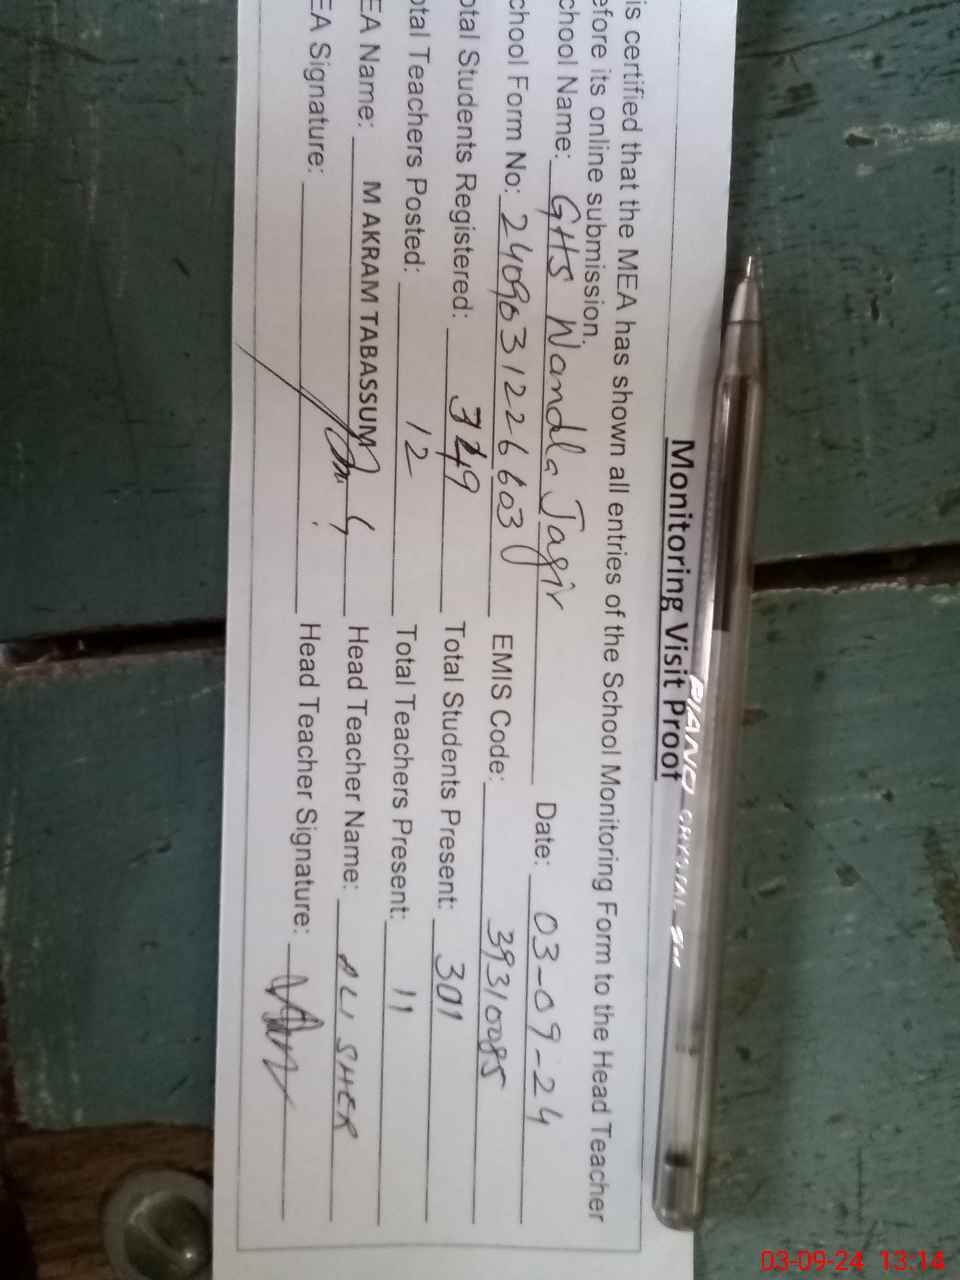 Monitoring Visit Proof
is certified that the MEA has shown all entries of the School Monitoring Form to the Head Teacher
efore its online submission.
chool Name: GHS Wandla Jagir Date: 03-09-24
chool Form No: 2409031226603 EMIS Code: 39310085
otal Students Registered: 349 Total Students Present: 301
otal Teachers Posted: 12 Total Teachers Present: 11
EA Name: M AKRAM TABASSUM Head Teacher Name: ALI SHER
EA Signature: Head Teacher Signature:
PIANO
03-09-24 13:14